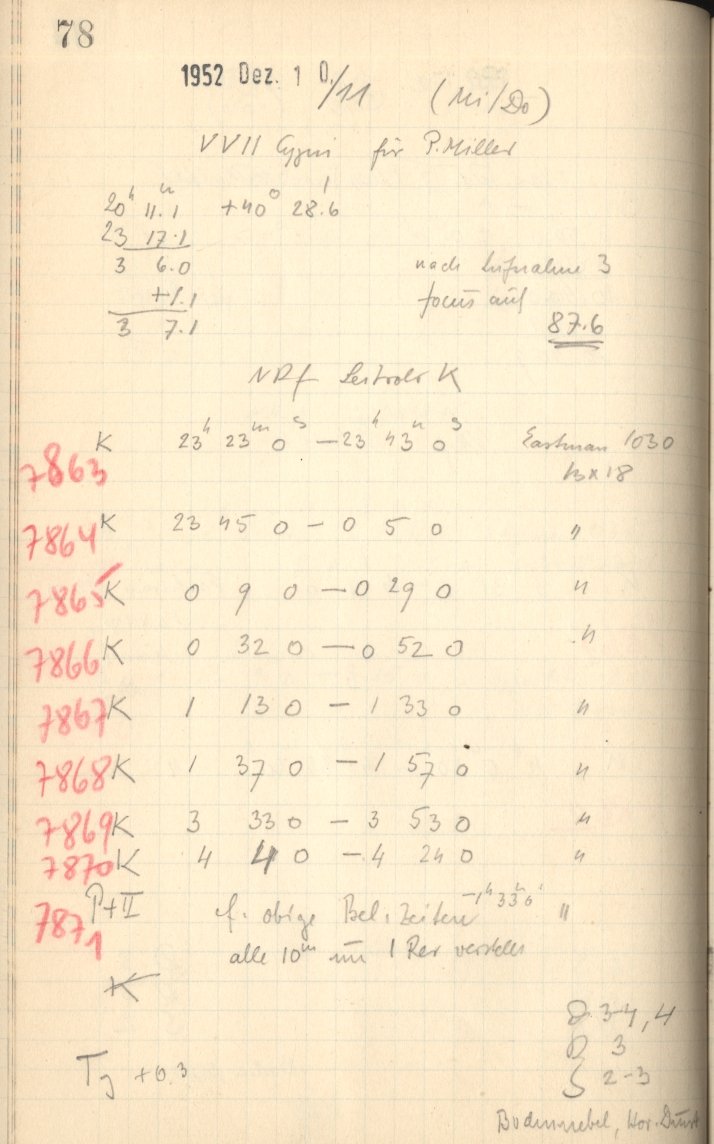 78
1952 Dez. 10./11 (Mi/Do)
VV II Cygni für P. Miller
20h 11.1m +40° 28.6'
23 17.1
3 6.0
+1.1
3 7.1
nach Aufnahme 3
focus auf
87.6
K
7863 K 23h 23m 0s – 23h 43m 0s Eastman 1030
13x18
7864 K 23 45 0 – 0 5 0 "
7865 K 0 9 0 – 0 29 0 "
7866 K 0 32 0 – 0 52 0 "
7867 K 1 13 0 – 1 33 0 "
7868 K 1 37 0 – 1 57 0 "
7869 K 3 33 0 – 3 53 0 "
7870 K 4 4 0 – 4 24 0 "
7871 P+II f. obige Bel. Zeiten "
alle 10m um 1 Rev verstellt
K
3-4, 4
D 3
S 2-3
T +0.3
Bodennebel, Hor. Dunst